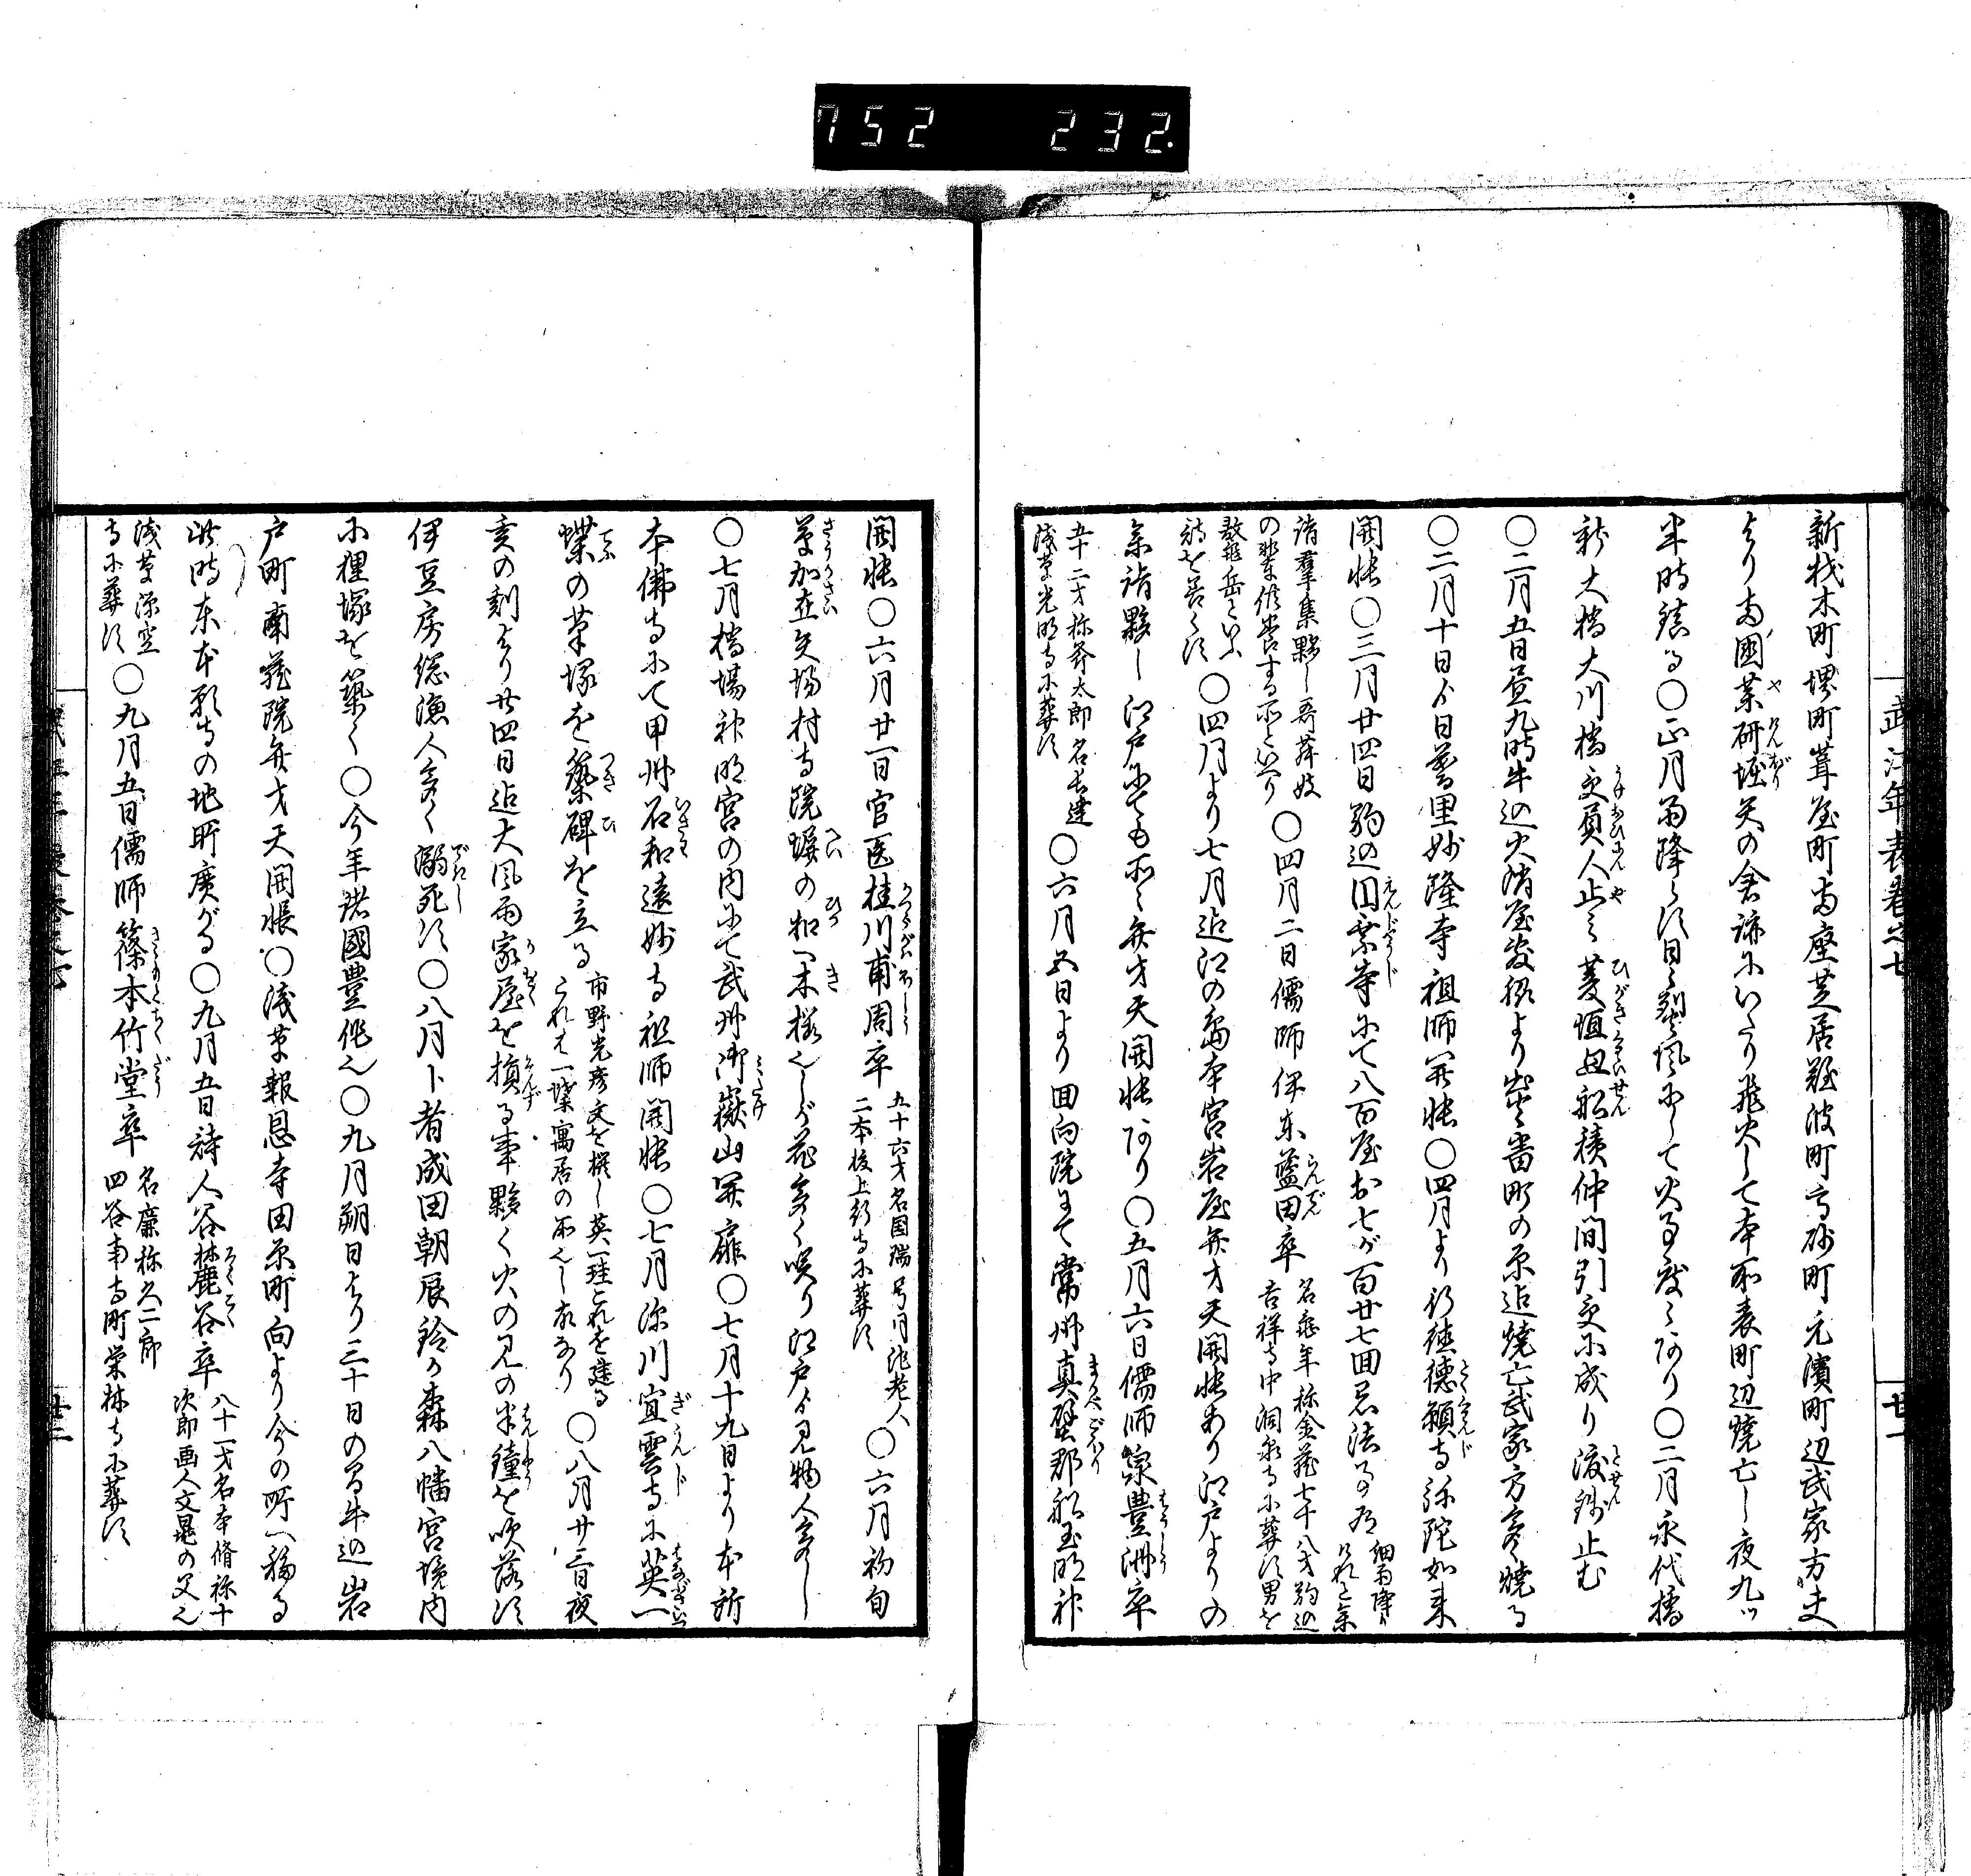 752 232.
武江年表巻之七
廿一
新材木町堺町葺屋町両座芝居難波町高砂町元濱町辺武家方夫
より両國薬研堀矢の倉誅にいたり飛火して本所表町辺焼亡し夜九ツ
半時鎮る〇正月雨降らす日々烈風にして火事度々あり〇二月永代橋
新大橋大川橋受負人止ミ菱垣廻船積仲間引受に成り渡銭止む
〇二月五日昼九時牛込火消屋敷脇より出火番町の原迄焼亡武家方多く焼る
〇二月十日より日暮里妙隆寺祖師開帳〇四月より行徳徳願寺弥陀如来
開帳〇三月廿四日駒込圓乗寺にて八百屋お七が百廿七回忌法事行
細雨降り
諸羣集夥し
〇四月二日儒師伊東藍田卒
名龜年称金蔵七十八才駒込
吉祥寺中洞泉寺に葬す男を
〇四月より七月迄江の島本宮岩屋弁才天開帳あり江戸よりの
参詣夥し江戸にても所々弁才天開帳あり〇五月六日儒師豊洲卒
五十二才称斧太郎名長達
浅草光明寺に葬す
〇六月五日より回向院にて常州真壁郡船玉明神
開帳〇六月廿一日官医桂川甫周卒
五十六才名国瑞号月池老人
二本榎上行寺に葬す
〇六月初旬
草加在矢場村寺院境の松一木様々しが花多く咲り江戸より見物人多し
〇七月橋場神明宮の内にて武州御嶽山開扉〇七月十九日より本所
本佛寺にて甲州石和遠妙寺祖師開帳〇七月深川宜雲寺に英一
蝶の筆塚を築碑を立る
市野光彦文を撰し英一珪これを建る
これは一蝶寓居の所なりし故なり
〇八月廿三日夜
亥の刻より廿四日迄大風雨家屋を損る事夥く火の見の半鐘を吹落す
伊豆房総漁人多く溺死す〇八月卜者成田朝辰鈴か森八幡宮境内
に狸塚を築く〇今年諸國豊作也〇九月朔日より三十日の間牛込岩
戸町南蔵院弁才天開帳〇浅草報恩寺田原町向より今の所へ移る
此時東本願寺の地所廣がる〇九月五日詩人谷麓谷卒
八十一才名本脩称十
次郎画人文晁の父也
浅草源空
寺に葬す
〇九月五日儒師篠本竹堂卒
名廉称久二郎
四谷南寺町栄林寺に葬す